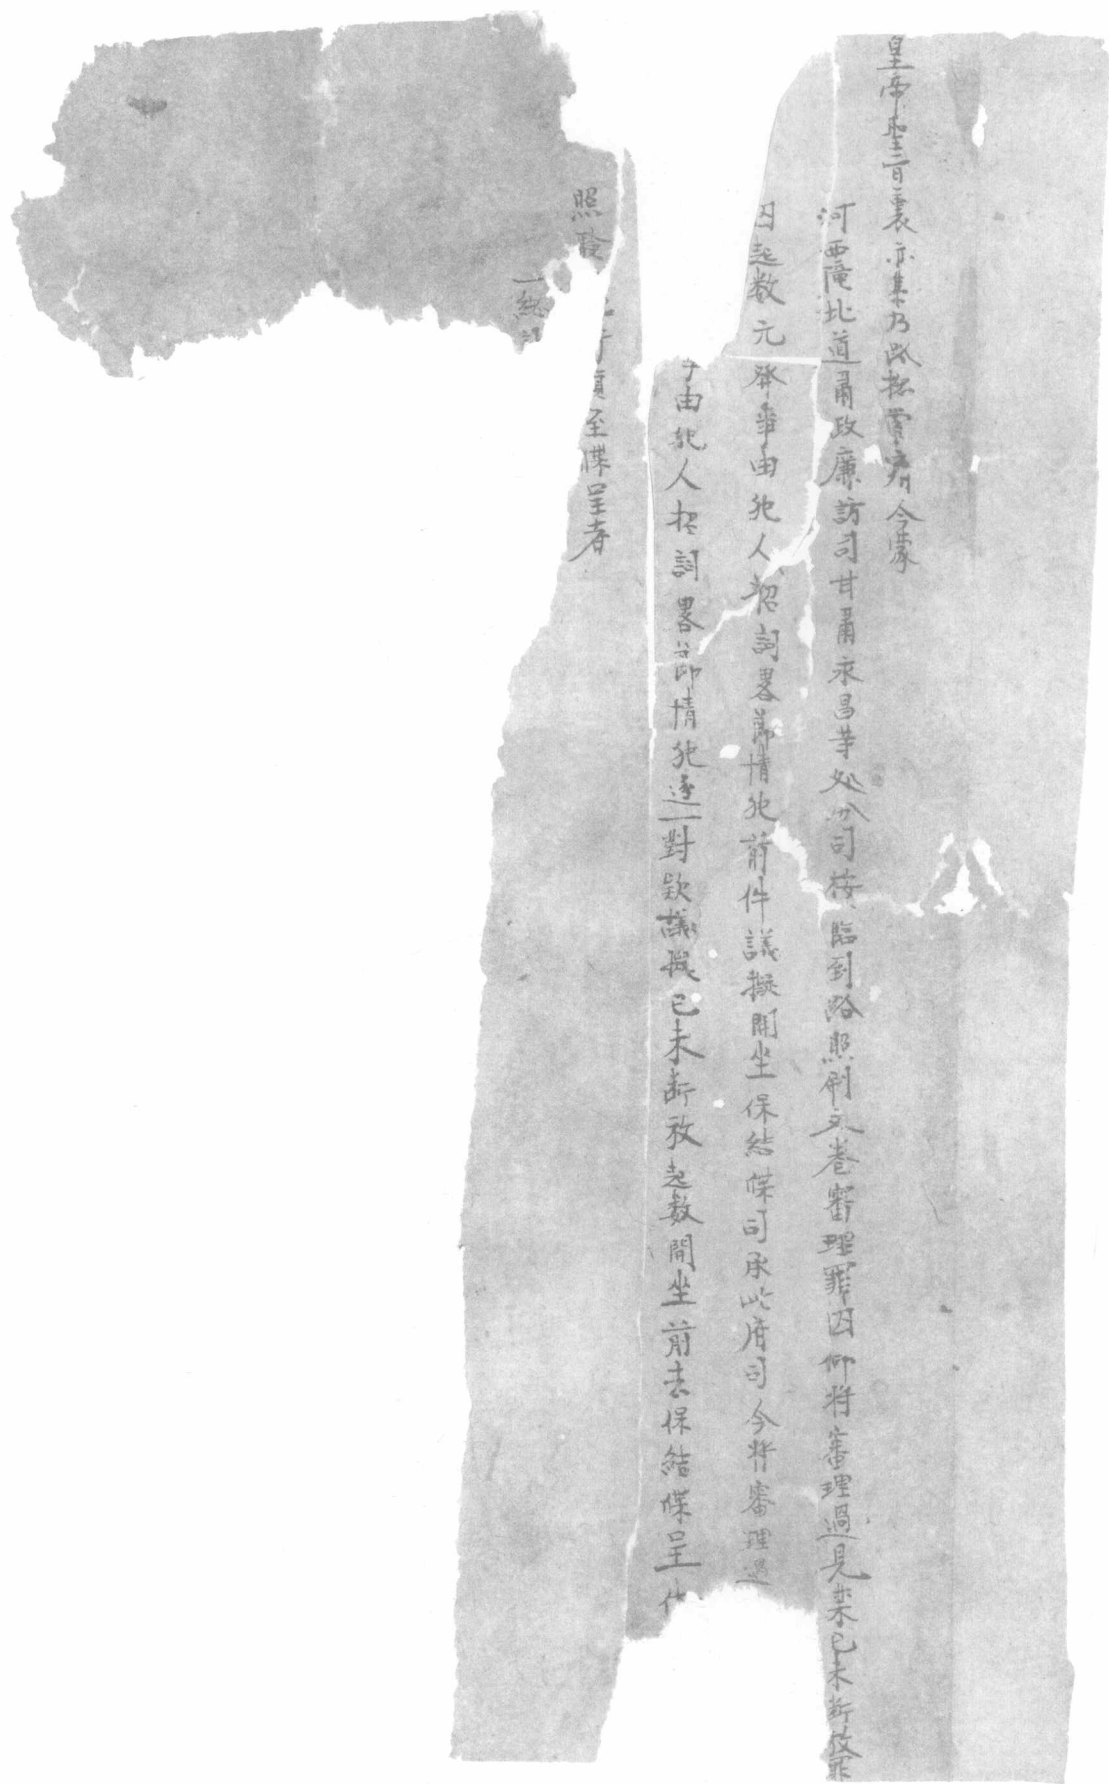 皇帝聖旨裏亦集乃路總管府今蒙
河西隴北道肅政廉訪司甘肅永昌等処分司按臨到路照刷文卷審理罪囚仰將審理過見禁已未断放罪
囚起数元發事由犯人招詞畧節情犯前件議擬開坐保結牒司承此府司今將審理過
事由犯人招詞畧節情犯逐一對欵議擬已未断放起数開坐前去保結牒呈
照驗 須至牒呈者
一総